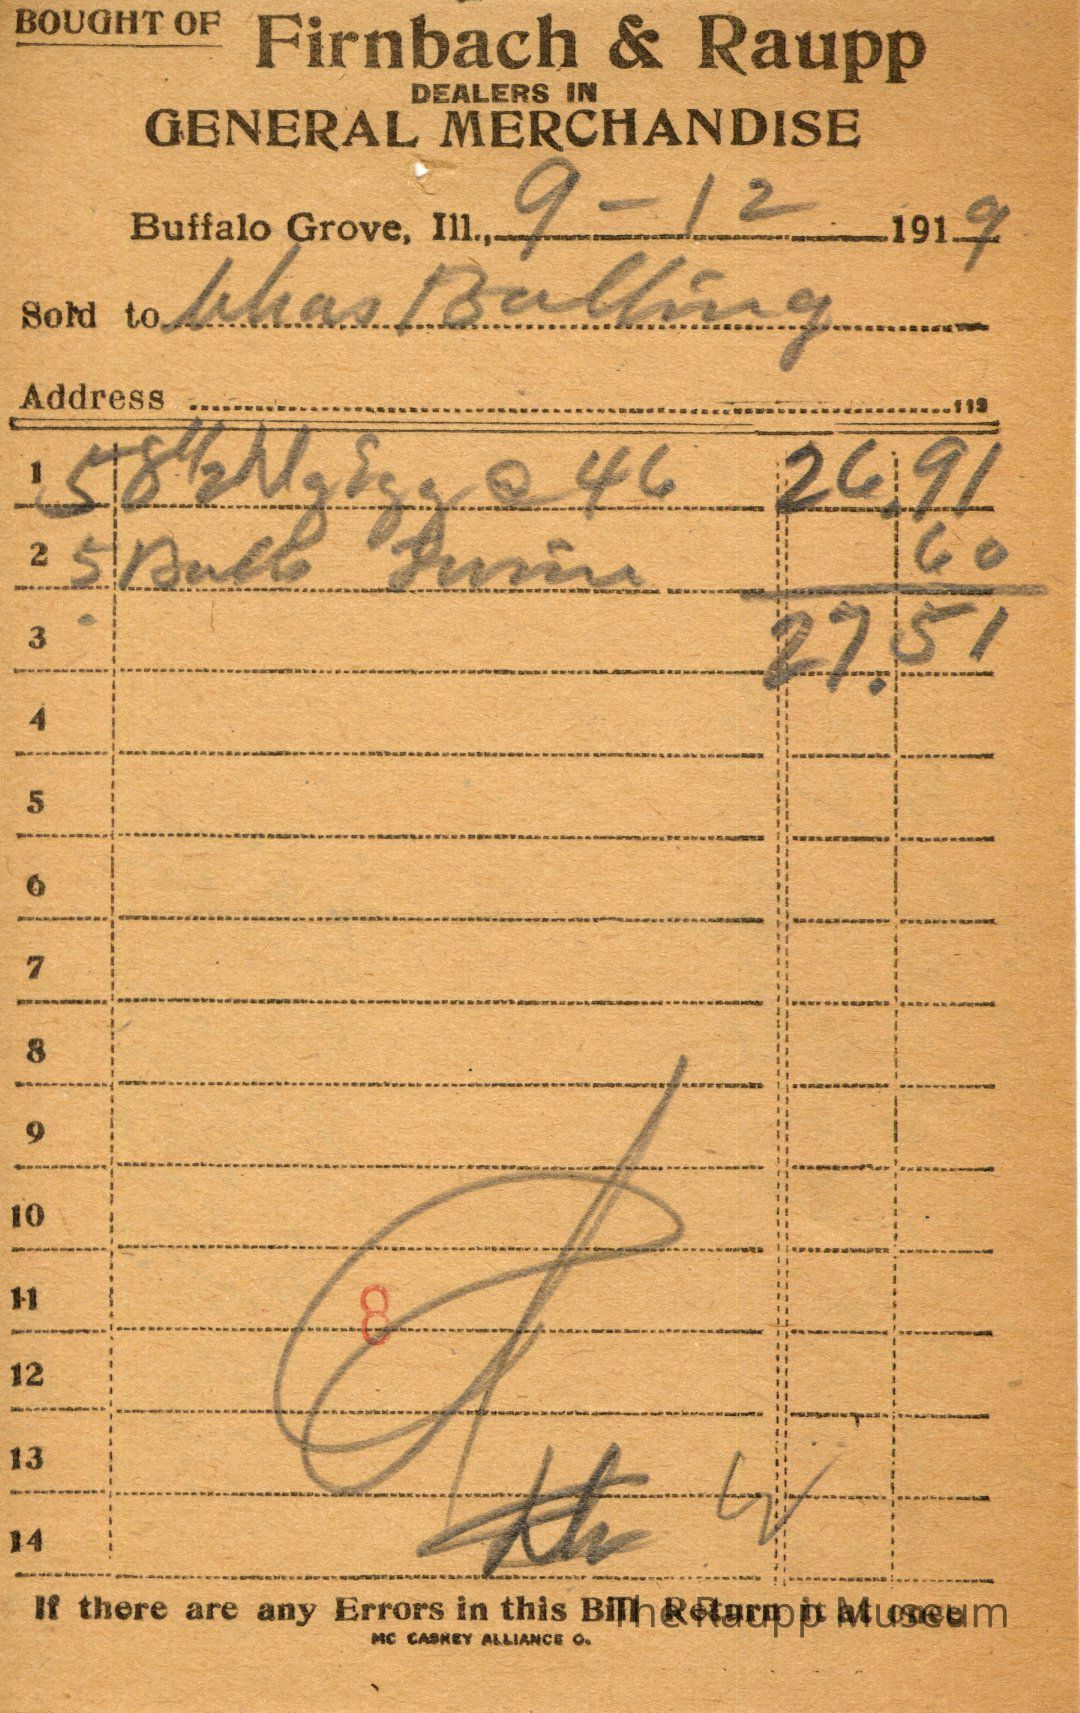 BOUGHT OF Firnbach & Raupp
DEALERS IN
GENERAL MERCHANDISE
Buffalo Grove, Ill., 9-12 1919
Sold to Chas Balling
Address 113
1 58 1/2 Egg @ 46 26.91
2 5 Balls Twine 60
3 27.51
4
5
6
7
8
9
10
11
8
12
13
14
If there are any Errors in this Bill Return it at once
The Raupp Museum
MC CASKEY ALLIANCE O.